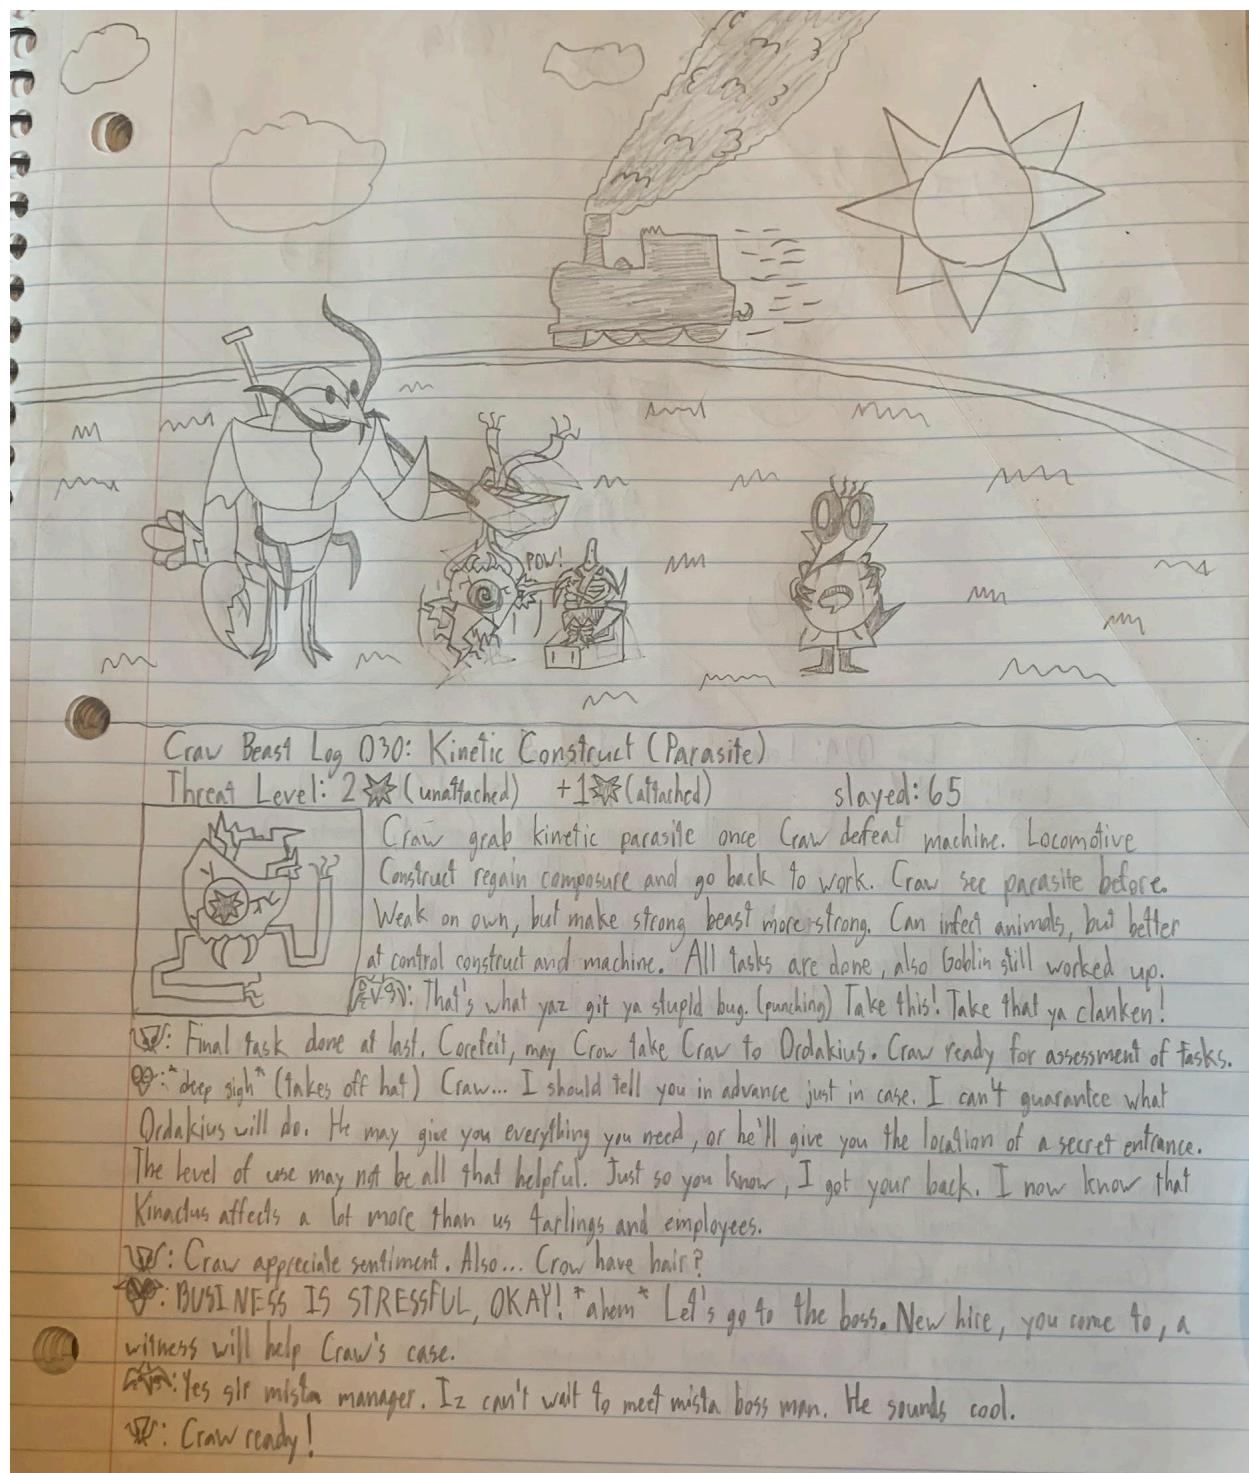 POW!
Craw Beast Log 030: Kinetic Construct (Parasite)
Threat Level: 2 (unattached) +1 (attached) slayed: 65
Craw grab kinetic parasite once Craw defeat machine. Locomotive
Construct regain composure and go back to work. Craw see parasite before.
Weak on own, but make strong beast more strong. Can infect animals, but better
at control construct and machine. All tasks are done, also Goblin still worked up.
: That's what yaz git ya stupid bug. (punching) Take this! Take that ya clanken!
: Final task done at last. Corefeit, may Crow take Craw to Ordakius. Craw ready for assessment of tasks.
: *deep sigh* (takes off hat) Craw... I should tell you in advance just in case. I can't guarantee what
Ordakius will do. He may give you everything you need, or he'll give you the location of a secret entrance.
The level of use may not be all that helpful. Just so you know, I got your back. I now know that
Kinactus affects a lot more than us tarlings and employees.
: Craw appreciate sentiment. Also... Crow have hair?
: BUSINESS IS STRESSFUL, OKAY! *ahem* Let's go to the boss. New hire, you come to, a
witness will help Craw's case.
: Yes sir mista manager. Iz can't wait to meet mista boss man. He sounds cool.
: Craw ready!